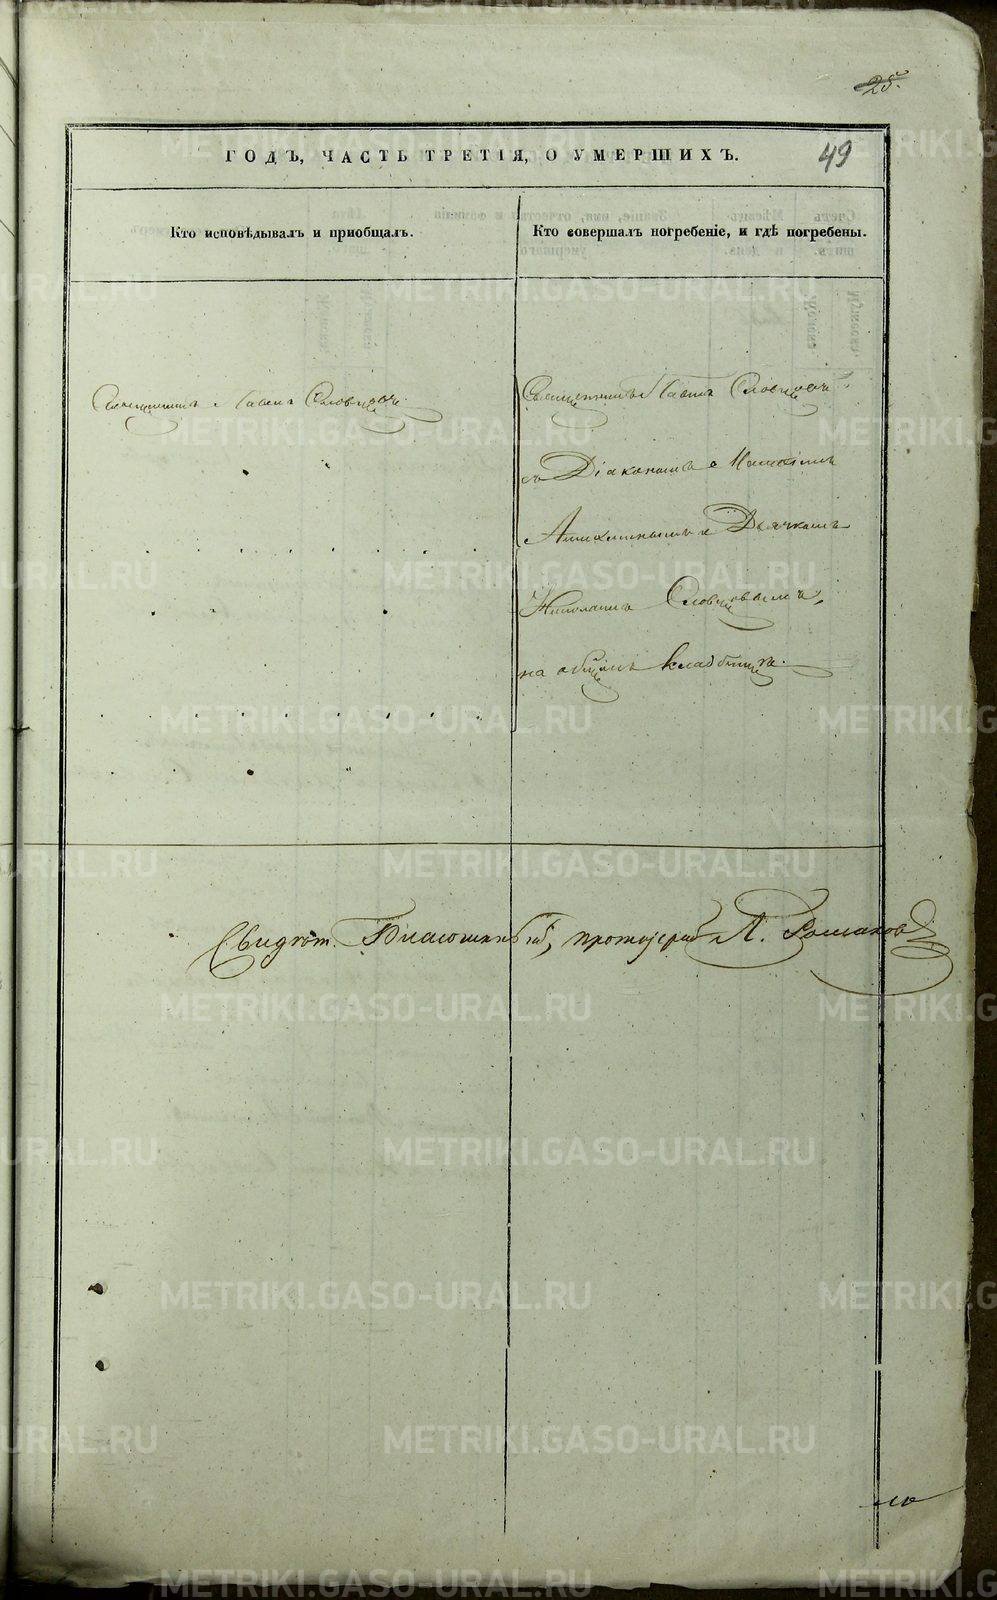 25.
ГОДЪ, ЧАСТЬ ТРЕТІЯ, О УМЕРШИХЪ.
49
Кто исповѣдывалъ и пріобщалъ.
Кто совершалъ погребеніе, и гдѣ погребены.
Священникъ Павелъ Словцовъ.
Священникъ Павелъ Словцовъ
съ Діакономъ
и Дьячкомъ
Николаемъ Словцовымъ,
на общемъ кладбищѣ.
Свидѣт. Благочинный, протоіерей Романов
METRIKI.GASO-URAL.RU